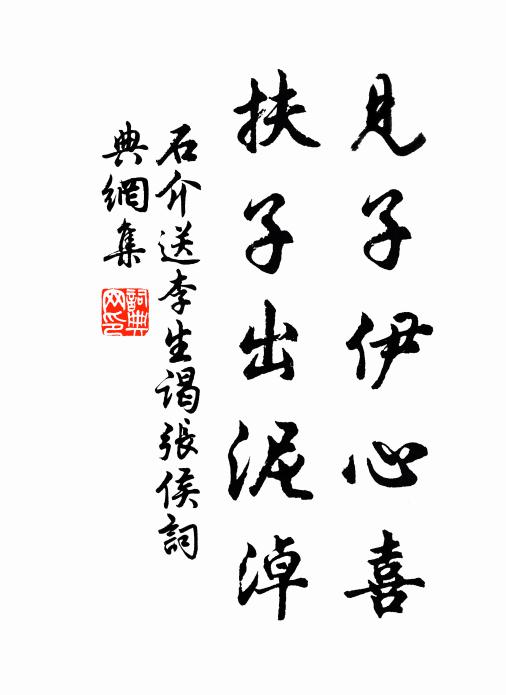 見子伊心喜
扶子出泥淖
石介送李生謁張侯詞
典網集
詞典網印